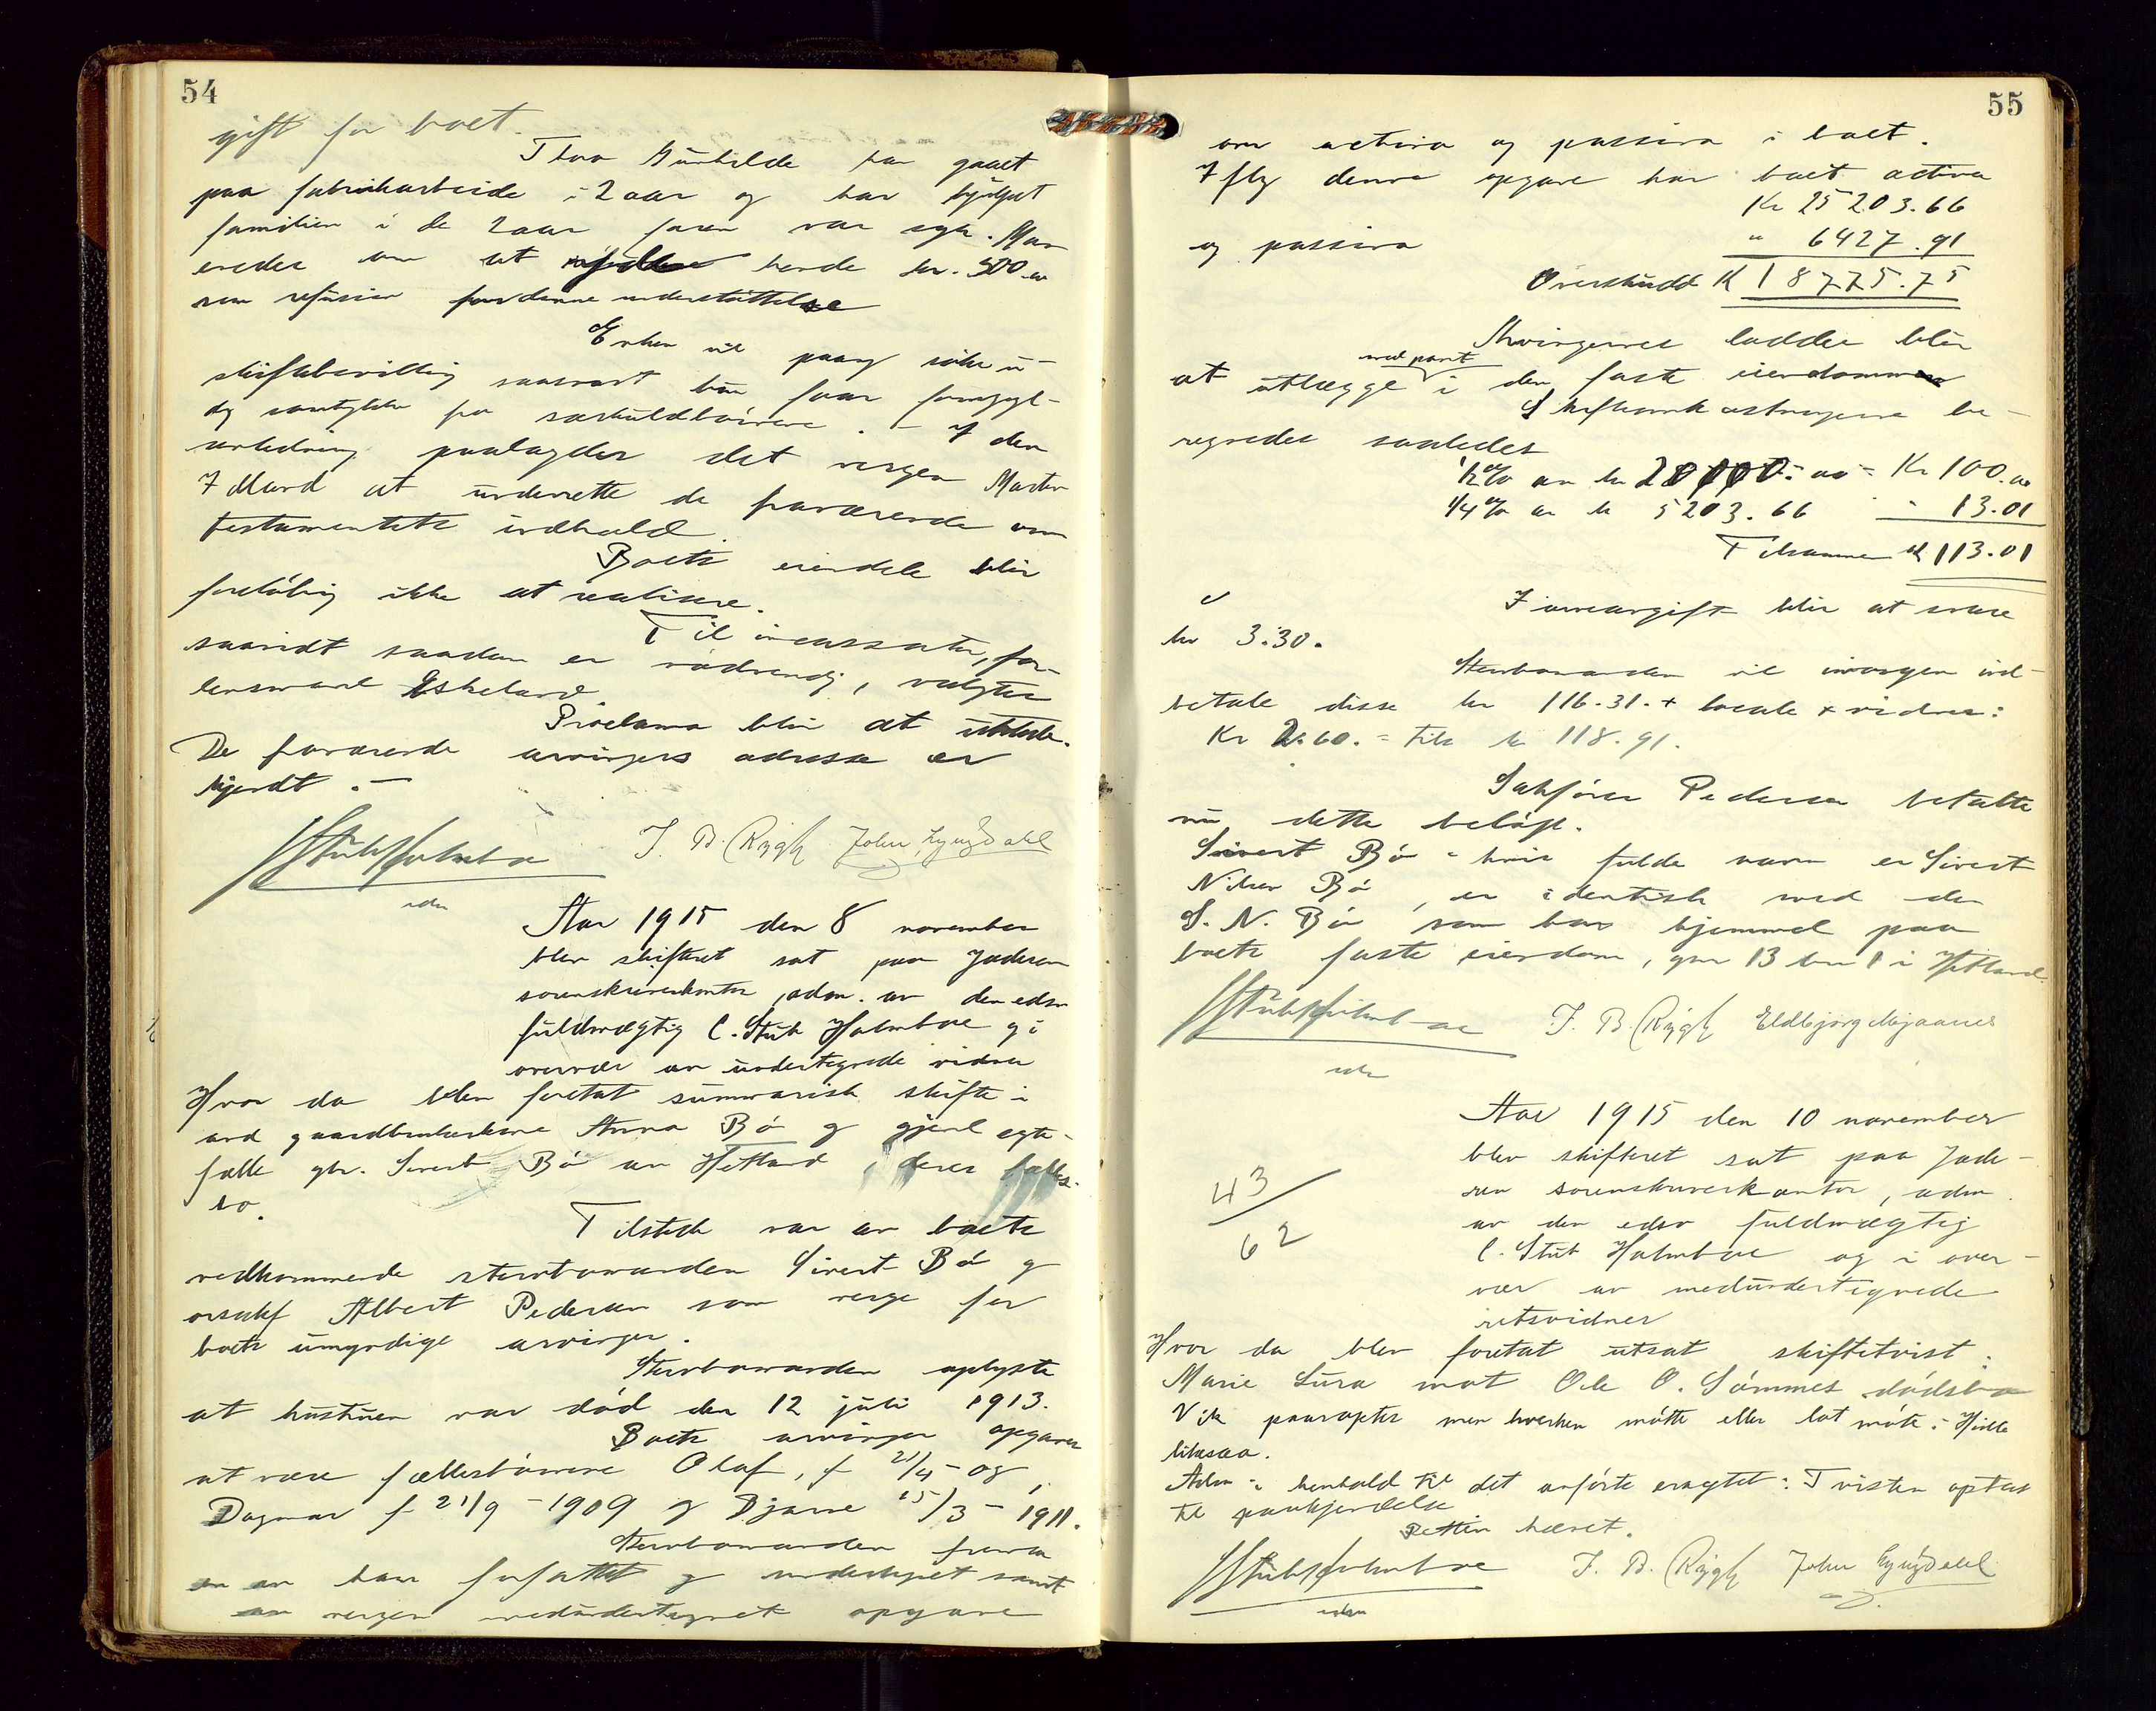 54
gift for boet.
Thea Gunhilde har gaaet
paa fabrikarbeide i 2 aar og har hjulpet
familien i de 2 aar faren var syk. Man
enedes om at hende kr. 500.00
som refusion for denne understøttelse
Enken vil paany søke u-
skiftebevilling saasnart hun faar fornyet
og samtykke fra særkuldbørnene. - I den
anledning paalagdes det vergen Martin
at underrette de fraværende om
testamentets indhold.
Boets eiendele blir
foreløbig ikke at realisere.
Til incassator, for-
saavidt saadan er nødvendig, valgtes
lensmand Eskeland
Proclama blir at utstede.
De fraværende arvingers adresse er
ukjendt. -
C Stub Holmboe T. B. Rygh John Lyngdahl
edsv
Aar 1915 den 8 november
blev skifteret sat paa Jæderen
sorenskriverkontor, adm. av den edsv
fuldmægtig C. Stub Holmboe og i
overvær av undertegnede vidner
Hvor da blev foretat summarisk skifte i
avd gaardbrukerkone Anna Bø og gjenl egte-
fælle gbr. Sivert Bø av Hetland, deres fælles-
bo.
Tilstede var av boets
vedkommende sterbomanden Sivert Bø og
orsakf Albert Pedersen som verge for
boets umyndige arvinger.
Sterbomanden oplyste
at hustruen var død den 12 juli 1913.
Boets arvinger opgaves
at være fællesbørnene Olaf, f 21/4 - 09,
Dagmar f 21/9 - 1909 og Bjarne 15/3 - 1911.
Sterbomanden frem
en av ham forfattet og underskrevet samt
av vergen medundertegnet opgave
55
over activa og passiva i boet.
Ifølg denne opgave har boet activa
Kr 25203.66
og passiva " 6427.91
Overskudd K 18775.75
Arvingernes lodder blir
at utlægge med pant i den faste eiendom
Skifterettsavgiften be-
regnedes saaledes
1/2% av kr 20000.00 = Kr 100.00
1/4% av kr 5203.66 " 13.01
Tilsammen kr 113.01
I arveavgift blir at svare
kr 3.30.
Sterbomanden vil imorgen ind-
betale disse kr 116.31. + locale + vidner:
Kr 2.60. = tils kr 118.91.
Sakfører Pedersen betalte
nu dette beløp.
Sivert Bø - hvis fulde navn er Sivert
Nilsen Bø, er identisk med den
S. N. Bø som har hjemmel paa
boets faste eiendom, gnr 13 bnr 1 i Hetland.
C Stub Holmboe T. B. Rygh Eldbjørg Mjaanes
edsv
Aar 1915 den 10 november
blev skifteret sat paa Jæde-
ren sorenskriverkontor, adm.
av den edsv fuldmægtig
C. Stub Holmboe og i over-
vær av medundertegnede
retsvidner
43/62
Hvor da blev foretat utsat skiftetvist:
Marie Lura mot Ole O. Sømmes dødsbo
Vik paaraaptes men hverken møtte eller lot møte. Hielle
likesaa.
Adm i henhold til det anførte eragtet: Tvisten optas
til paakjendelse
Retten hævet.
C Stub Holmboe T. B. Rygh John Lyngdahl
edsv